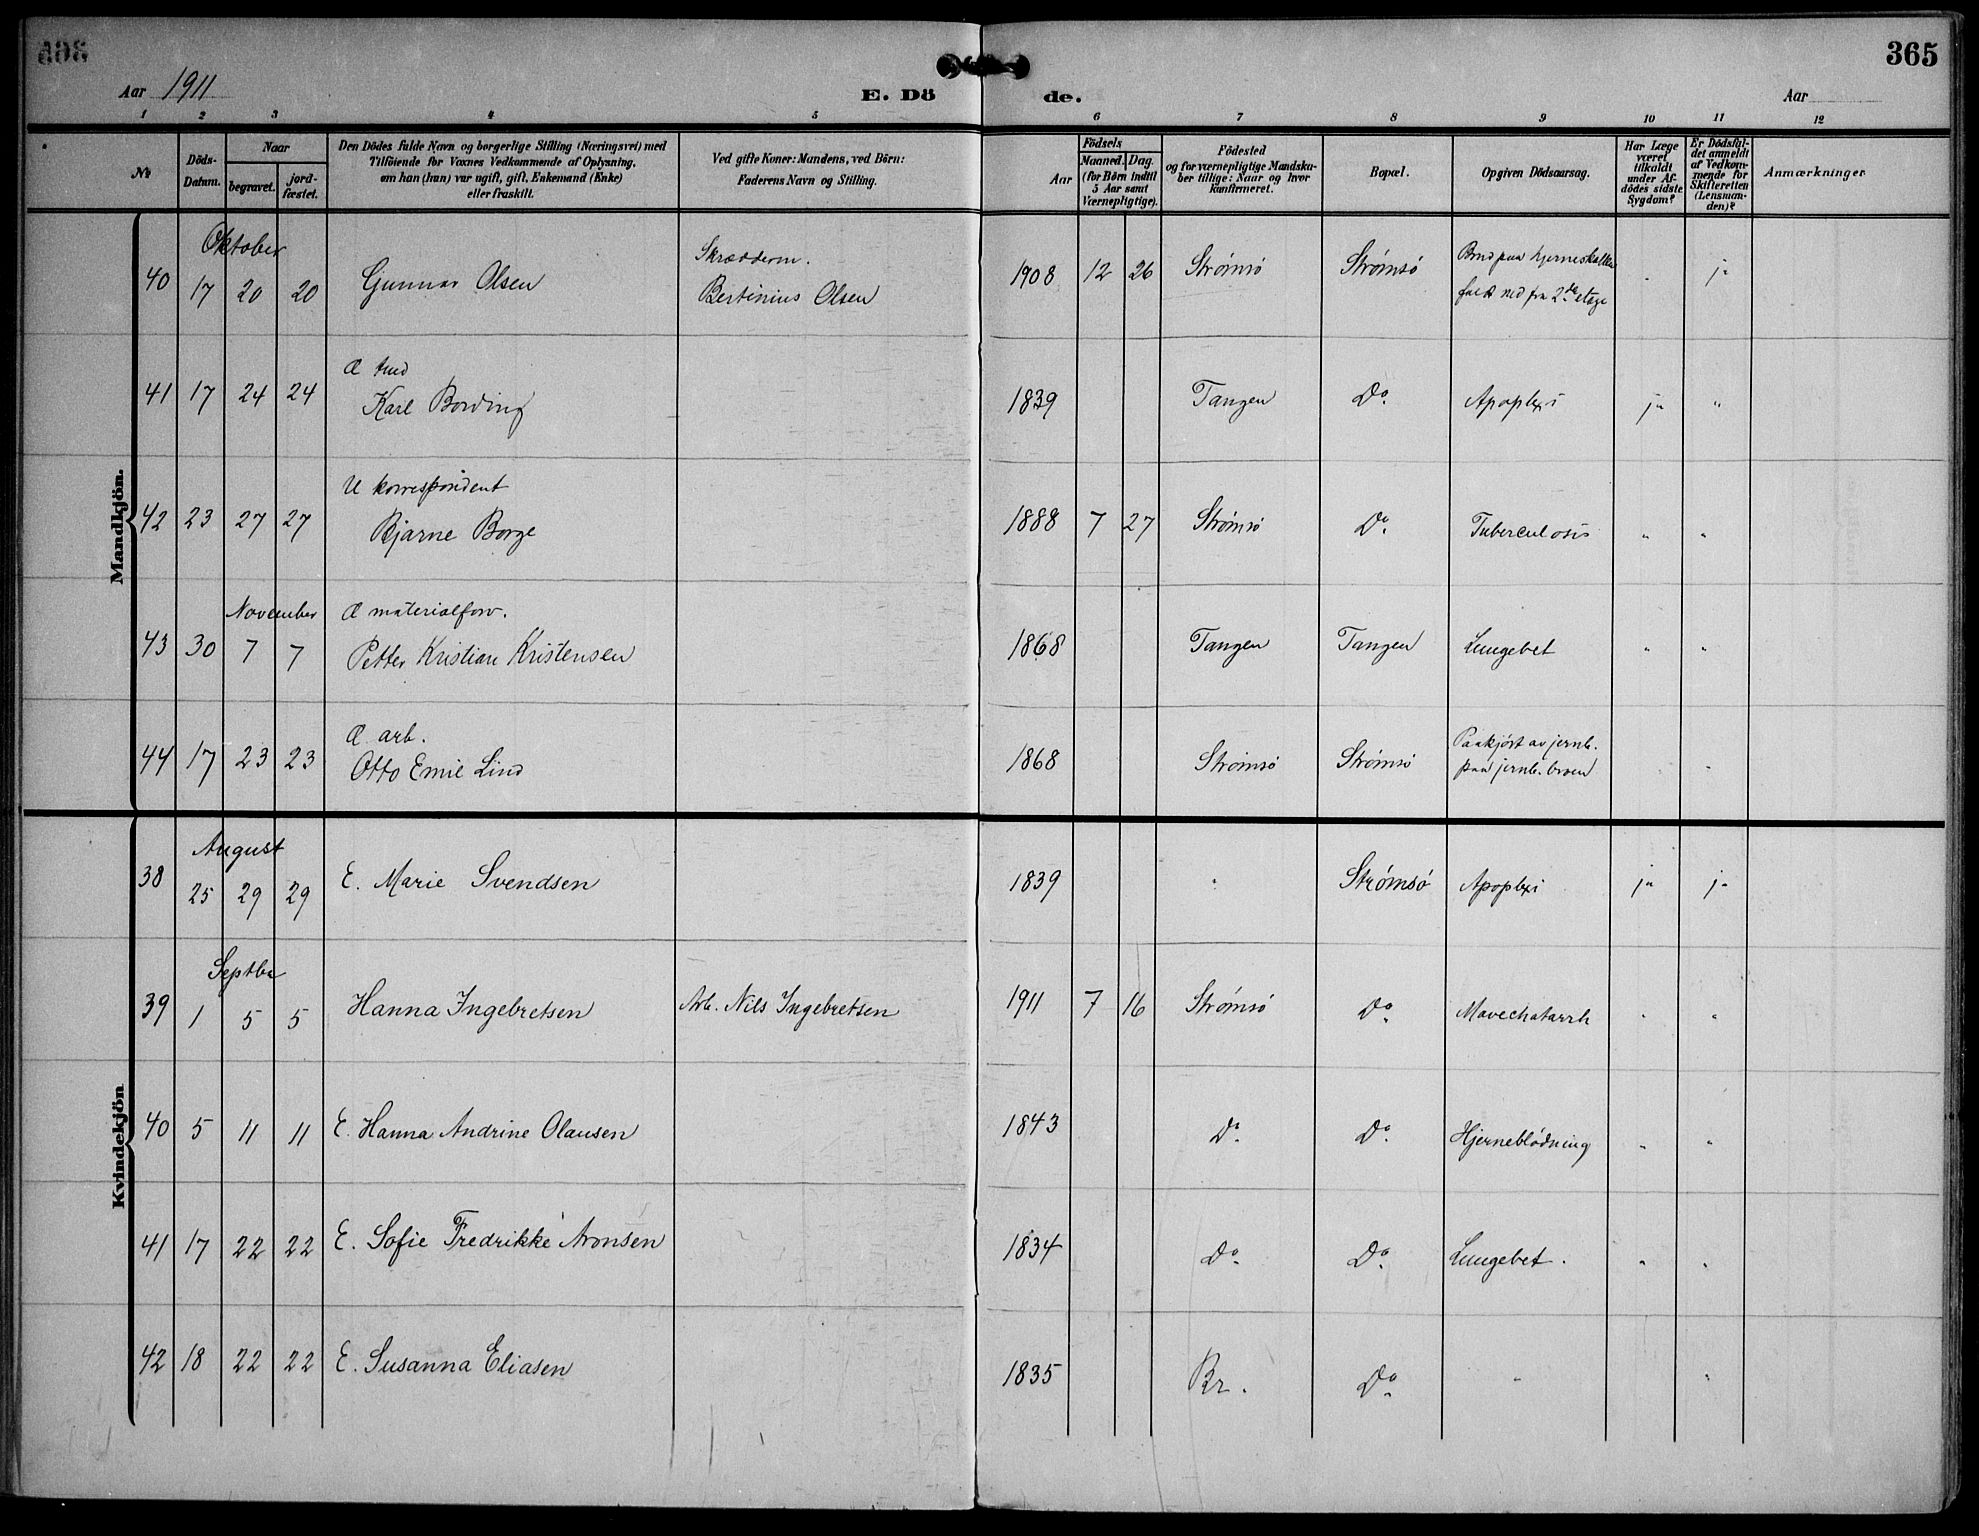 365
Aar 1911
E. Dö
de.
Aar
1 2 3 4 5 6 7 8 9 10 11 12
No
Döds-Datum.
Naar
begravet.
jord-fæstet.
Den Dödes fulde Navn og borgerlige Stilling (Næringsvei) med
Tilföiende for Voxnes Vedkommende af Oplysning,
om han (hun) var ugift, gift, Enkemand (Enke)
eller fraskilt.
Ved gifte Koner: Mandens, ved Börn:
Faderens Navn og Stilling.
Födsels
Aar
Maaned. Dag.
(for Börn indtil
5 Aar samt
Værnepligtige).
Födested
og for værnepligtige Mandska-
ber tillige: Naar og hvor
konfirmeret.
Bopæl.
Opgiven Dödsaarsag.
Har Læge
været
tilkaldt
under Af-
dödes sidste
Sygdom?
Er Dödsfal-
det anmeldt
af Vedkom-
mende for
Skifteretten
(Lensman-
den)?
Anmærkninger
Mandkjön.
Oktober
Skrædderm.
40 17 20 20 Gunnar Olsen Bertinius Olsen 1908 12 26 Strømsø Strømsø Brud paa hjerneskallen " ja
faldt ned fra 2den etage
Æ
41 17 24 24 Karl Bording 1839 Tangen Do Apoplexi ja "
U korrespondent
42 23 27 27 Bjarne Borge 1888 7 27 Strømsø Do Tuberculosis " "
November Æ materialforv.
43 30 7 7 Petter Kristian Kristensen 1868 Tangen Tangen Lungebet " "
Æ arb.
44 17 23 23 Otto Emil Lind 1868 Strømsø Strømsø Paakjørt av jernb.
paa jernb. broen " "
Kvindekjön
August
38 25 29 29 E. Marie Svendsen 1839 " Strømsø Apoplexi ja ja
Septbr
39 1 5 5 Hanna Ingebretsen Arb. Nils Ingebretsen 1911 7 16 Strømsø Do Mavechatarrh " "
40 5 11 11 E. Hanna Andrine Olausen 1843 Do Do Hjerneblødning " "
41 17 22 22 E. Sofie Fredrikke Aronsen 1834 Do Do Lungebet. " "
42 18 22 22 E. Susanna Eliasen 1835 Br. Do " "